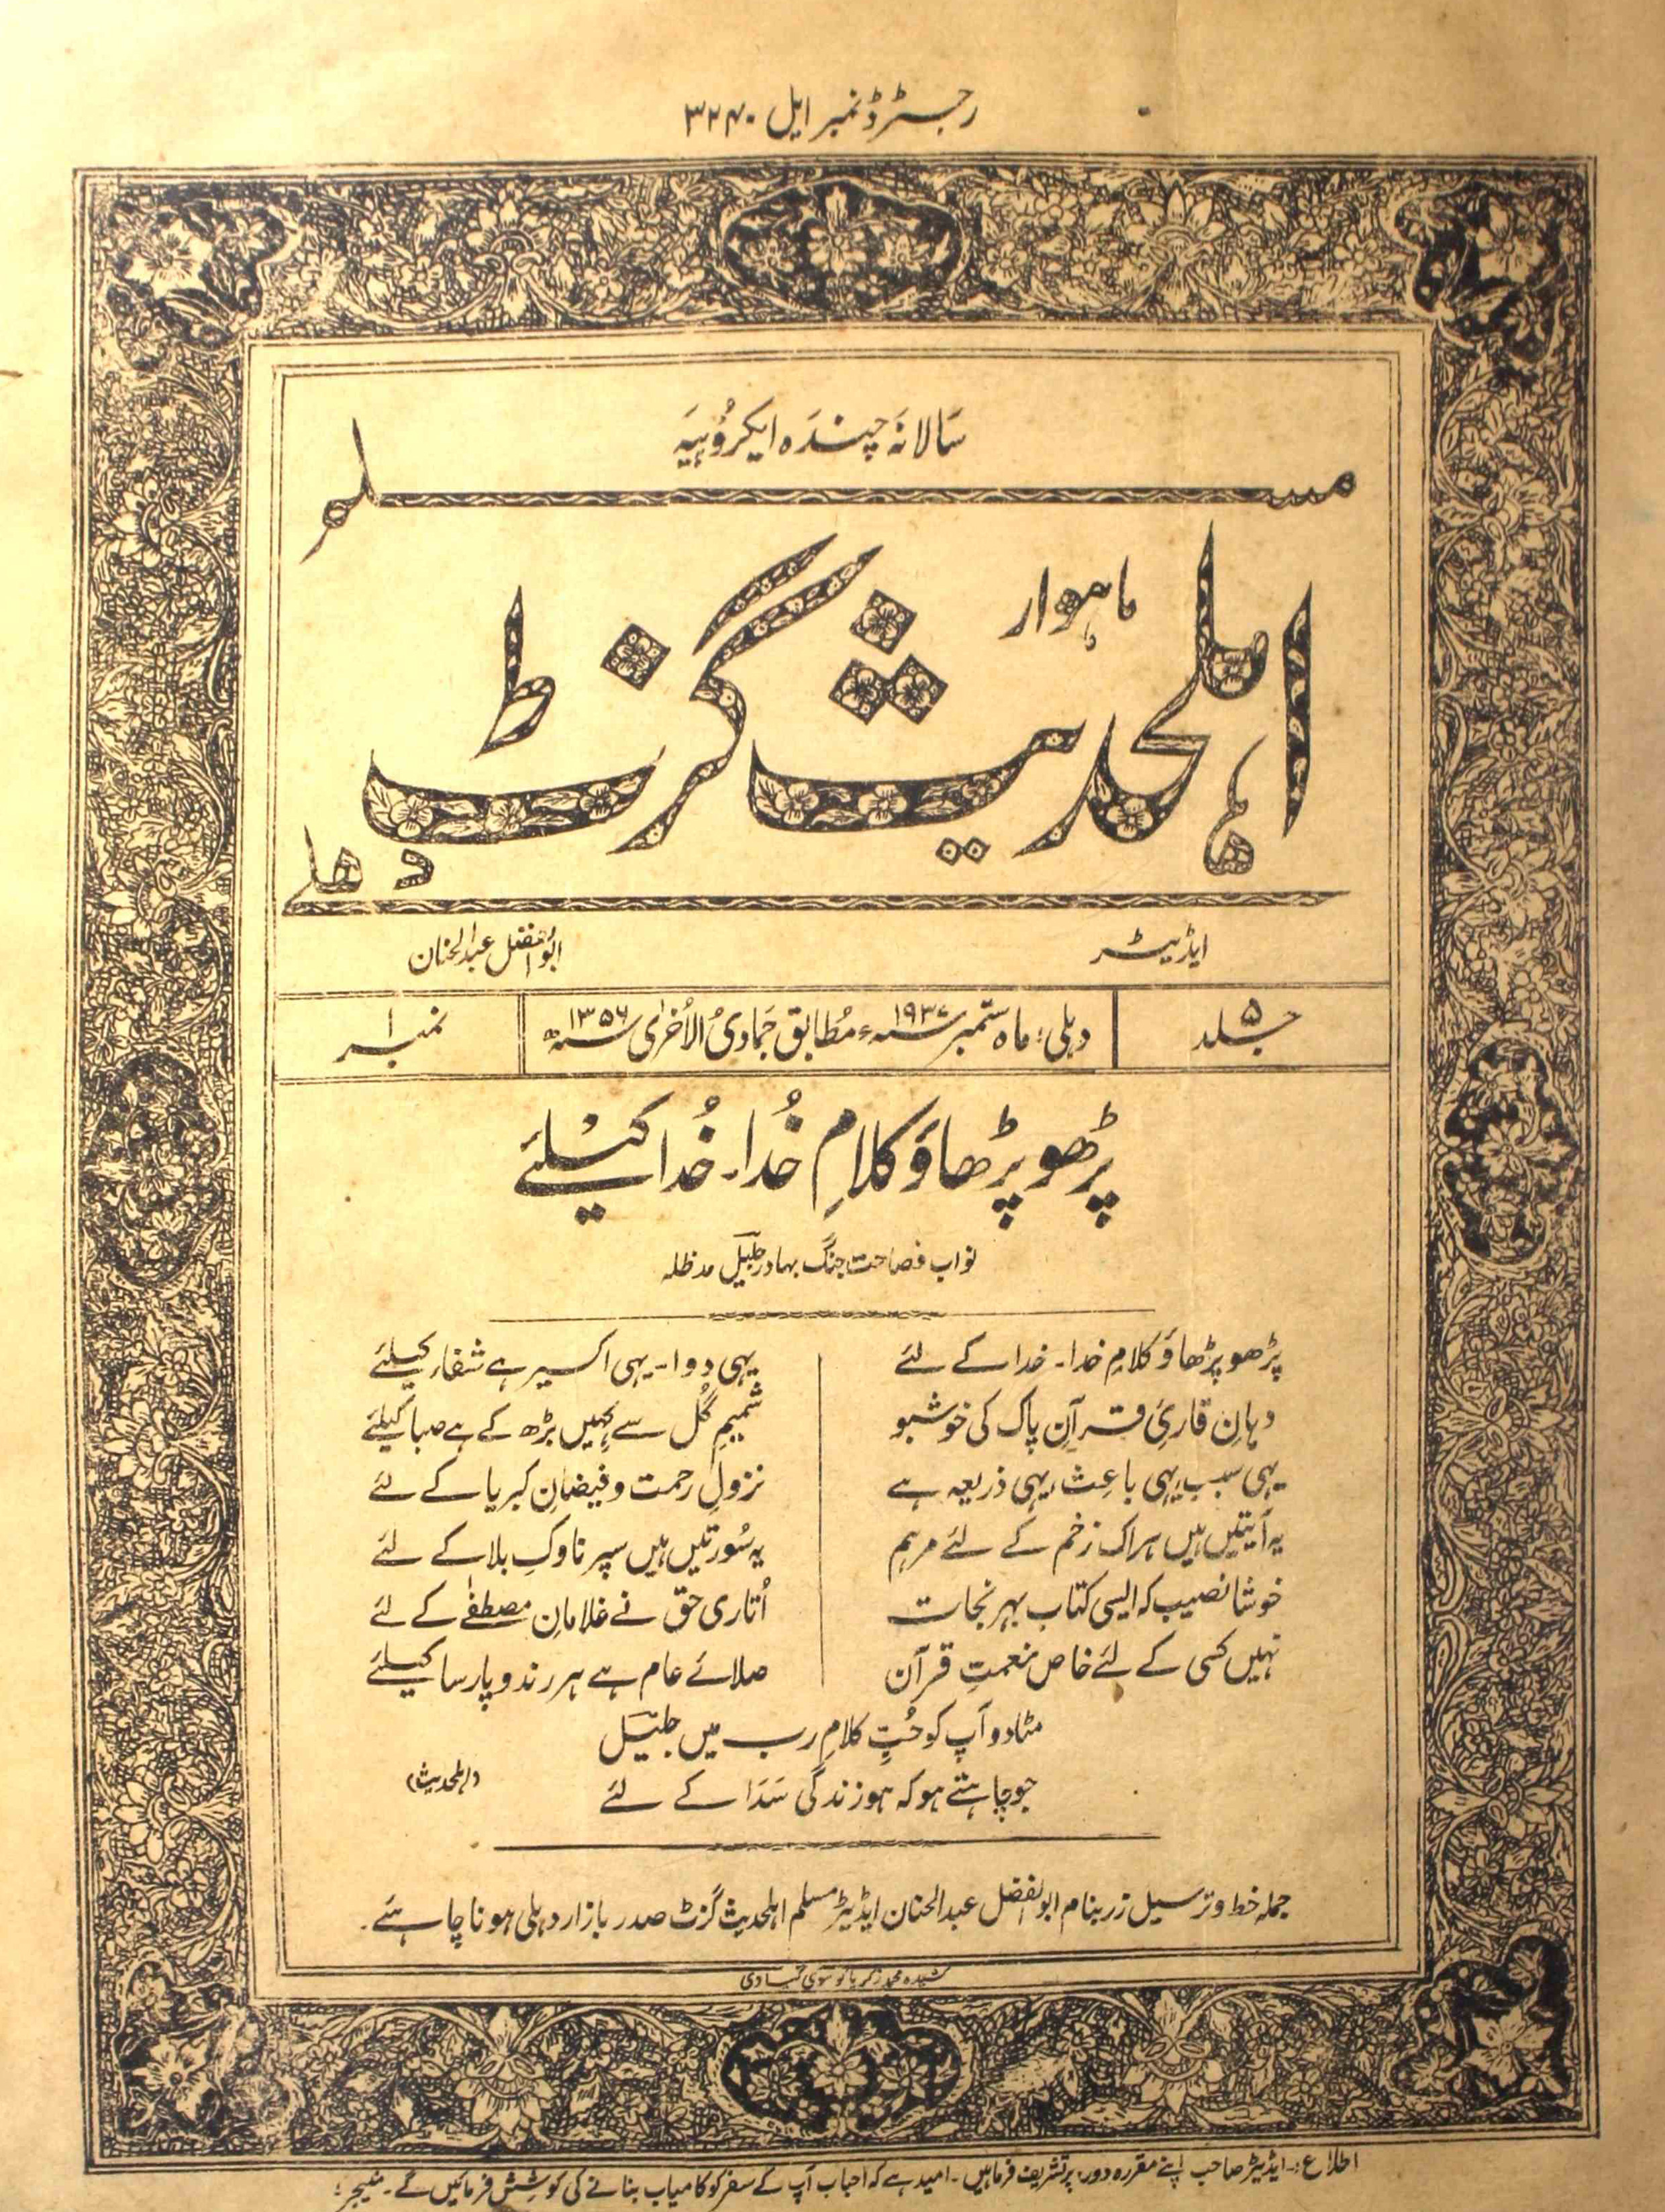 رجسٹرڈ نمبر ایل ۳۲۴۰
سالانہ چندہ ایکروپیہ
مسلم
ماہوار
اہلحدیث گزٹ
دھلی
ایڈیٹر
ابوالفضل عبدالحنان
جلد ۵
دہلی: ماہ ستمبر سنہ ۱۹۳۷ء مطابق جمادی الاخریٰ سنہ ۱۳۵۶ھ
نمبر ۱
پڑھو پڑھاؤ کلامِ خُدا۔ خُدا کیلئے
نواب فصاحت جنگ بہادر جلیل مدظلہ
پڑھو پڑھاؤ کلامِ خدا۔ خدا کے لئے
یہی دوا۔ یہی اکسیر ہے شفاء کیلئے
دہانِ قاریٔ قرآنِ پاک کی خوشبو
شمیمِ گُل سے کہیں بڑھ کے ہے صبا کیلئے
یہی سبب یہی باعِث، یہی ذریعہ ہے
نزولِ رحمت و فیضانِ کبریا کے لئے
یہ آیتیں ہیں ہر اک زخم کے لئے مرہم
یہ سُورتیں ہیں سپر ناوکِ بلا کے لئے
خوشا نصیب کہ ایسی کتاب بہر نجات
اُتاری حق نے غلامانِ مصطفےٰ کے لئے
نہیں کسی کے لئے خاص نعمتِ قرآن
صلائے عام ہے ہر رند و پارسا کیلئے
مٹا دو آپ کو حُبِّ کلامِ رب میں جلیل
جو چاہتے ہو کہ ہو زندگی سَدَا کے لئے
(اہلحدیث)
جملہ خط و ترسیل زر بنام ابوالفضل عبدالحنان ایڈیٹر مسلم اہلحدیث گزٹ صدر بازار دہلی ہونا چاہئے۔
کشیدہ محمد زکریا
اطلاع:۔ ایڈیٹر صاحب اپنے مقررہ دورہ پر تشریف فرما ہیں۔ امید ہے کہ احباب آپ کے سفر کو کامیاب بنانے کی کوشش فرمائیں گے۔ منیجر: